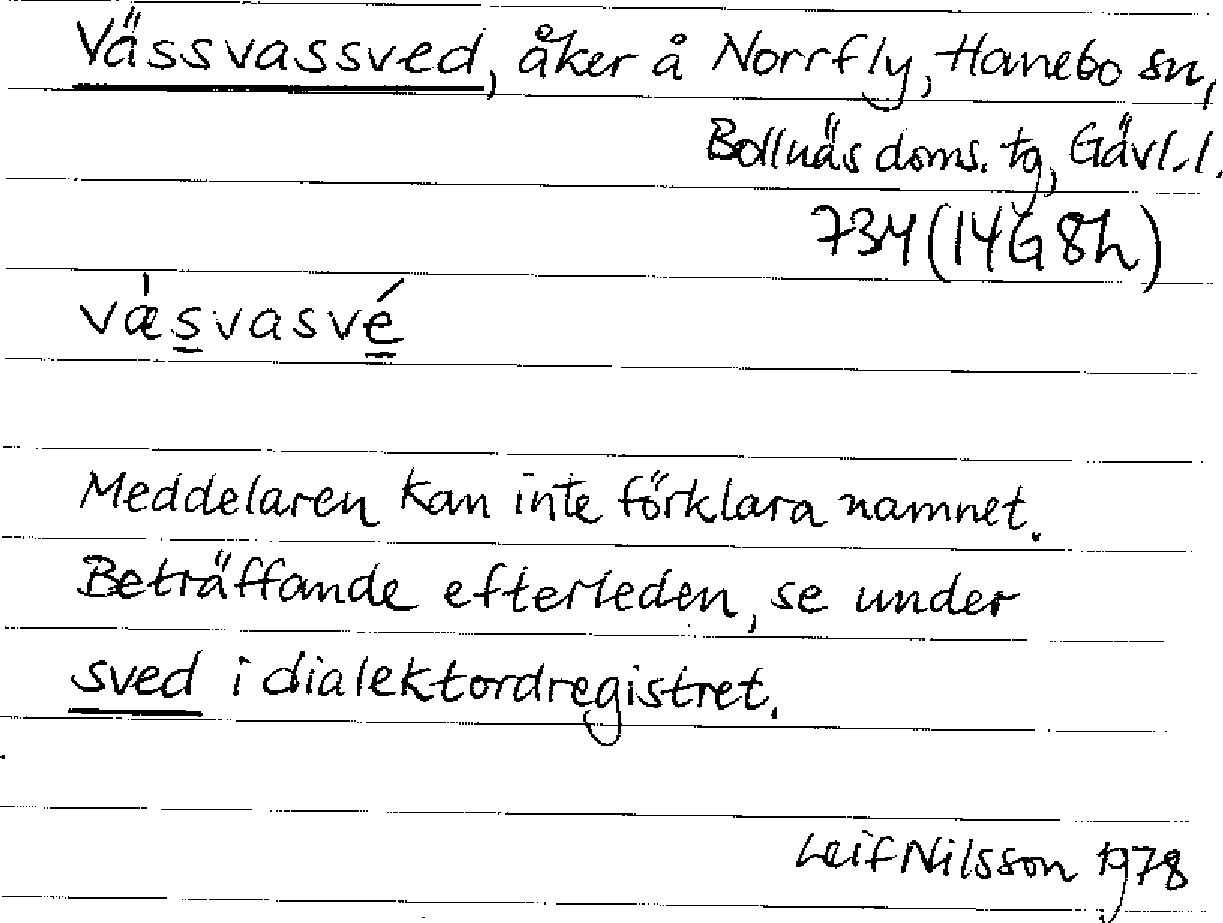 Vässvassved, åker å Norrfly, Hanebo sn,
Bollnäs doms. tg, Gävl. l.
734 (14G 8h)
væ̍s̲vasvé̳
Meddelaren kan inte förklara namnet.
Beträffande efterleden, se under
sved i dialektordregistret.
Leif Nilsson 1978